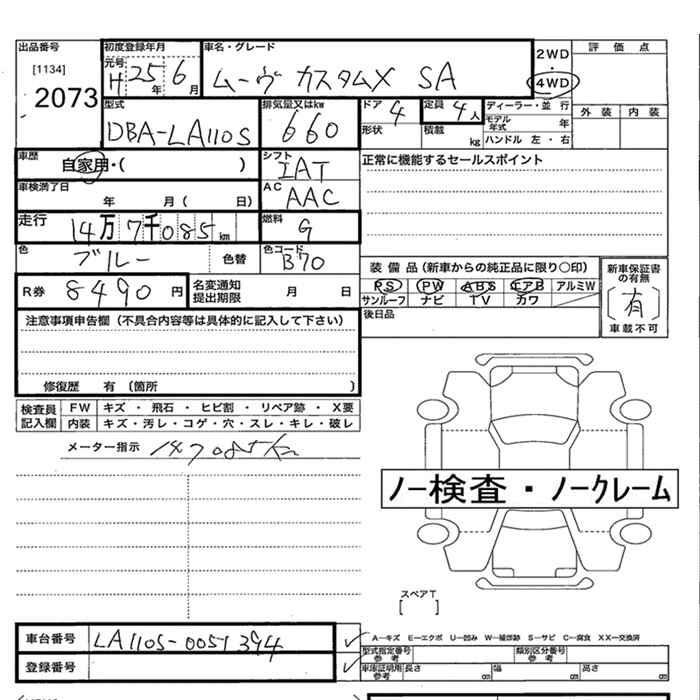 出品番号
[1134]
2073
初度登録年月
元号
H 25年 6月
車名・グレード
ムーヴ カスタムX SA
2WD
・
4WD
評価点
外装 内装
型式
DBA-LA110S
排気量又はkw
660
ドア 4
形状
定員 4人
積載 kg
ディーラー・並行
モデル年式 年
ハンドル 左・右
車歴
自家用・( )
シフト
IAT
正常に機能するセールスポイント
車検満了日
年 月( 日)
AC
AAC
走行
14万7千085km
燃料
G
色
ブルー 色替
色コード
B70
装備品(新車からの純正品に限り○印)
PS PW ABS エアB アルミW
サンルーフ ナビ TV カワ
新車保証書の有無
[有]
車載不可
R券 8490円
名変通知
提出期限 月 日
後日品
注意事項申告欄(不具合内容等は具体的に記入して下さい)
修復歴 有(箇所 )
検査員記入欄
FW キズ・飛石・ヒビ割・リペア跡・X要
内装 キズ・汚レ・コゲ・穴・スレ・キレ・破レ
メーター指示
ノー検査・ノークレーム
スペアT
[ ]
車台番号 LA110S-0051394
登録番号
A―キズ E―エクボ U―凹み W―補修跡 S―サビ C―腐食 XX―交換済
型式指定番号
参考
類別区分番号
参考
車庫証明用
参考
長さ cm 幅 cm 高さ cm